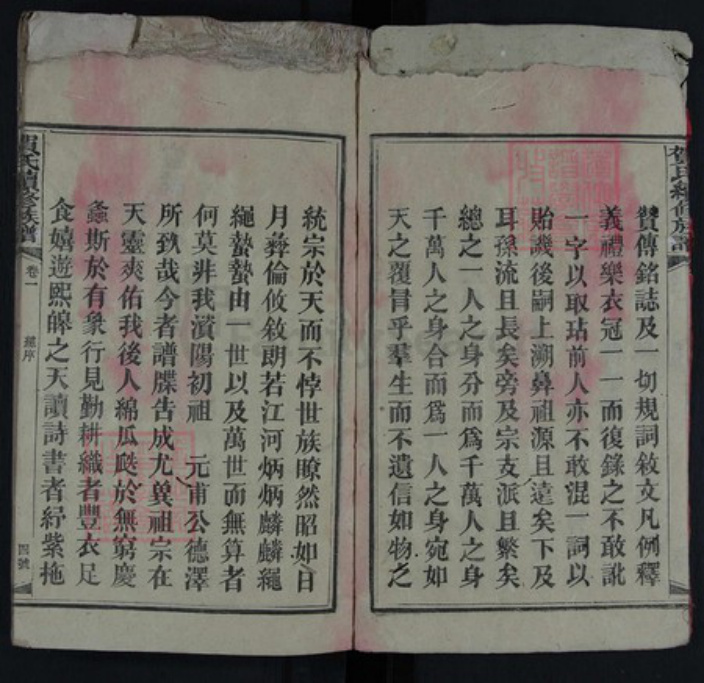 贊傳銘誌及一切規詞敘文凡例釋
義禮樂衣冠一一而復錄之不敢訛
一字以取玷前人亦不敢混一詞以
貽譏後嗣上溯鼻祖源且遠矣下及
耳孫流且長矣旁及宗支派且繁矣
總之一人之身分而爲千萬人之身
千萬人之身合而爲一人之身宛如
天之覆冐乎羣生而不遺信如物之
統宗於天而不悖世族瞭然昭如日
月彝倫攸敘朗若江河炳炳麟麟繩
繩蟄蟄由一世以及萬世而無算者
何莫非我濱陽初祖 元甫公德澤
所致哉今者譜牒告成尤兾祖宗在
天靈爽佑我後人綿瓜瓞於無窮慶
螽斯於有象行見勤耕織者豐衣足
食嬉遊熙皥之天讀詩書者紆紫拖
賀氏續修族譜
卷一
四號